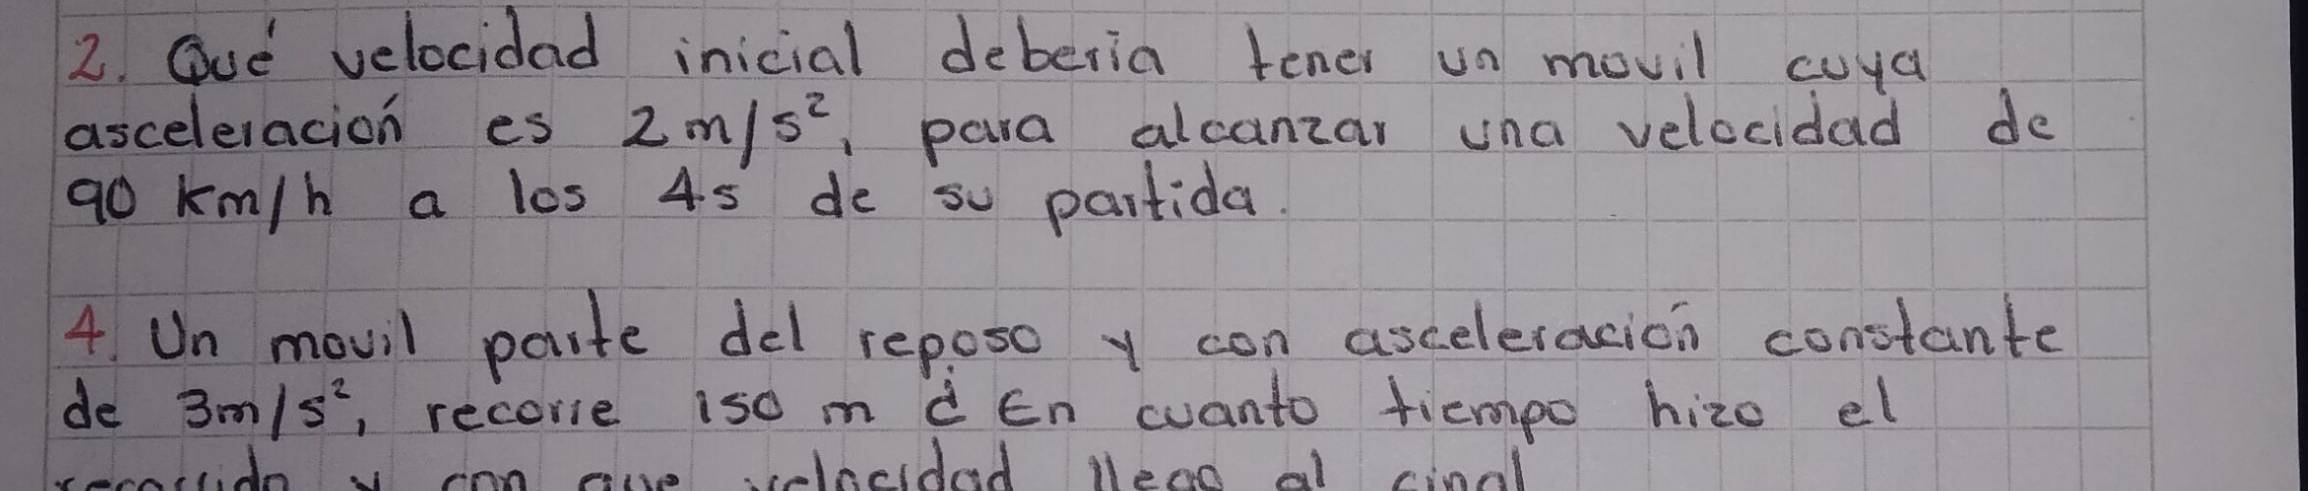 2. Qué velocidad inicial deberia tener un movil cuya
asceleración es 2m/s², para alcanzar una velocidad de
90 km/h a los 4s de su partida.
4. Un movil parte del reposo y con asceleración constante
de 3m/s², recorre 150 m ¿ En cuanto tiempo hizo el
recorrido y con que velocidad llego al final